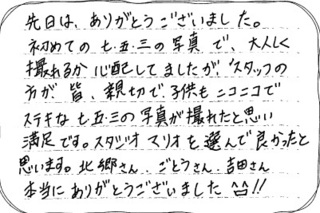 先日は、ありがとうございました。
初めての 七・五・三の写真 で、大人しく
撮れるか 心配してましたが、スタッフの
方が 皆、親切で、子供も ニコニコで
ステキな 七五・三の写真が撮れたと思い
満足です。スタジオ マリオを 選んで 良かったと
思います。北郷さん、ごとうさん、吉田さん
本当に ありがとうございました ^^!!